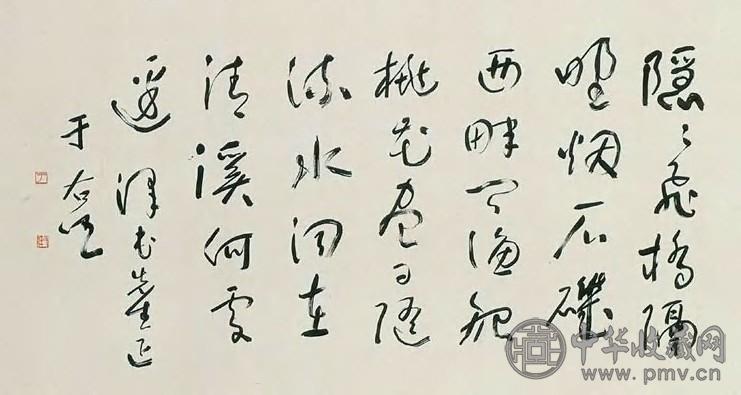 隱〻飛橋隔
野烟石磯
西畔問漁船
桃花盡日隨
流水洞在
清溪何處
邊 澤 先生正
于右任
中华收藏网
www.pmv.cn